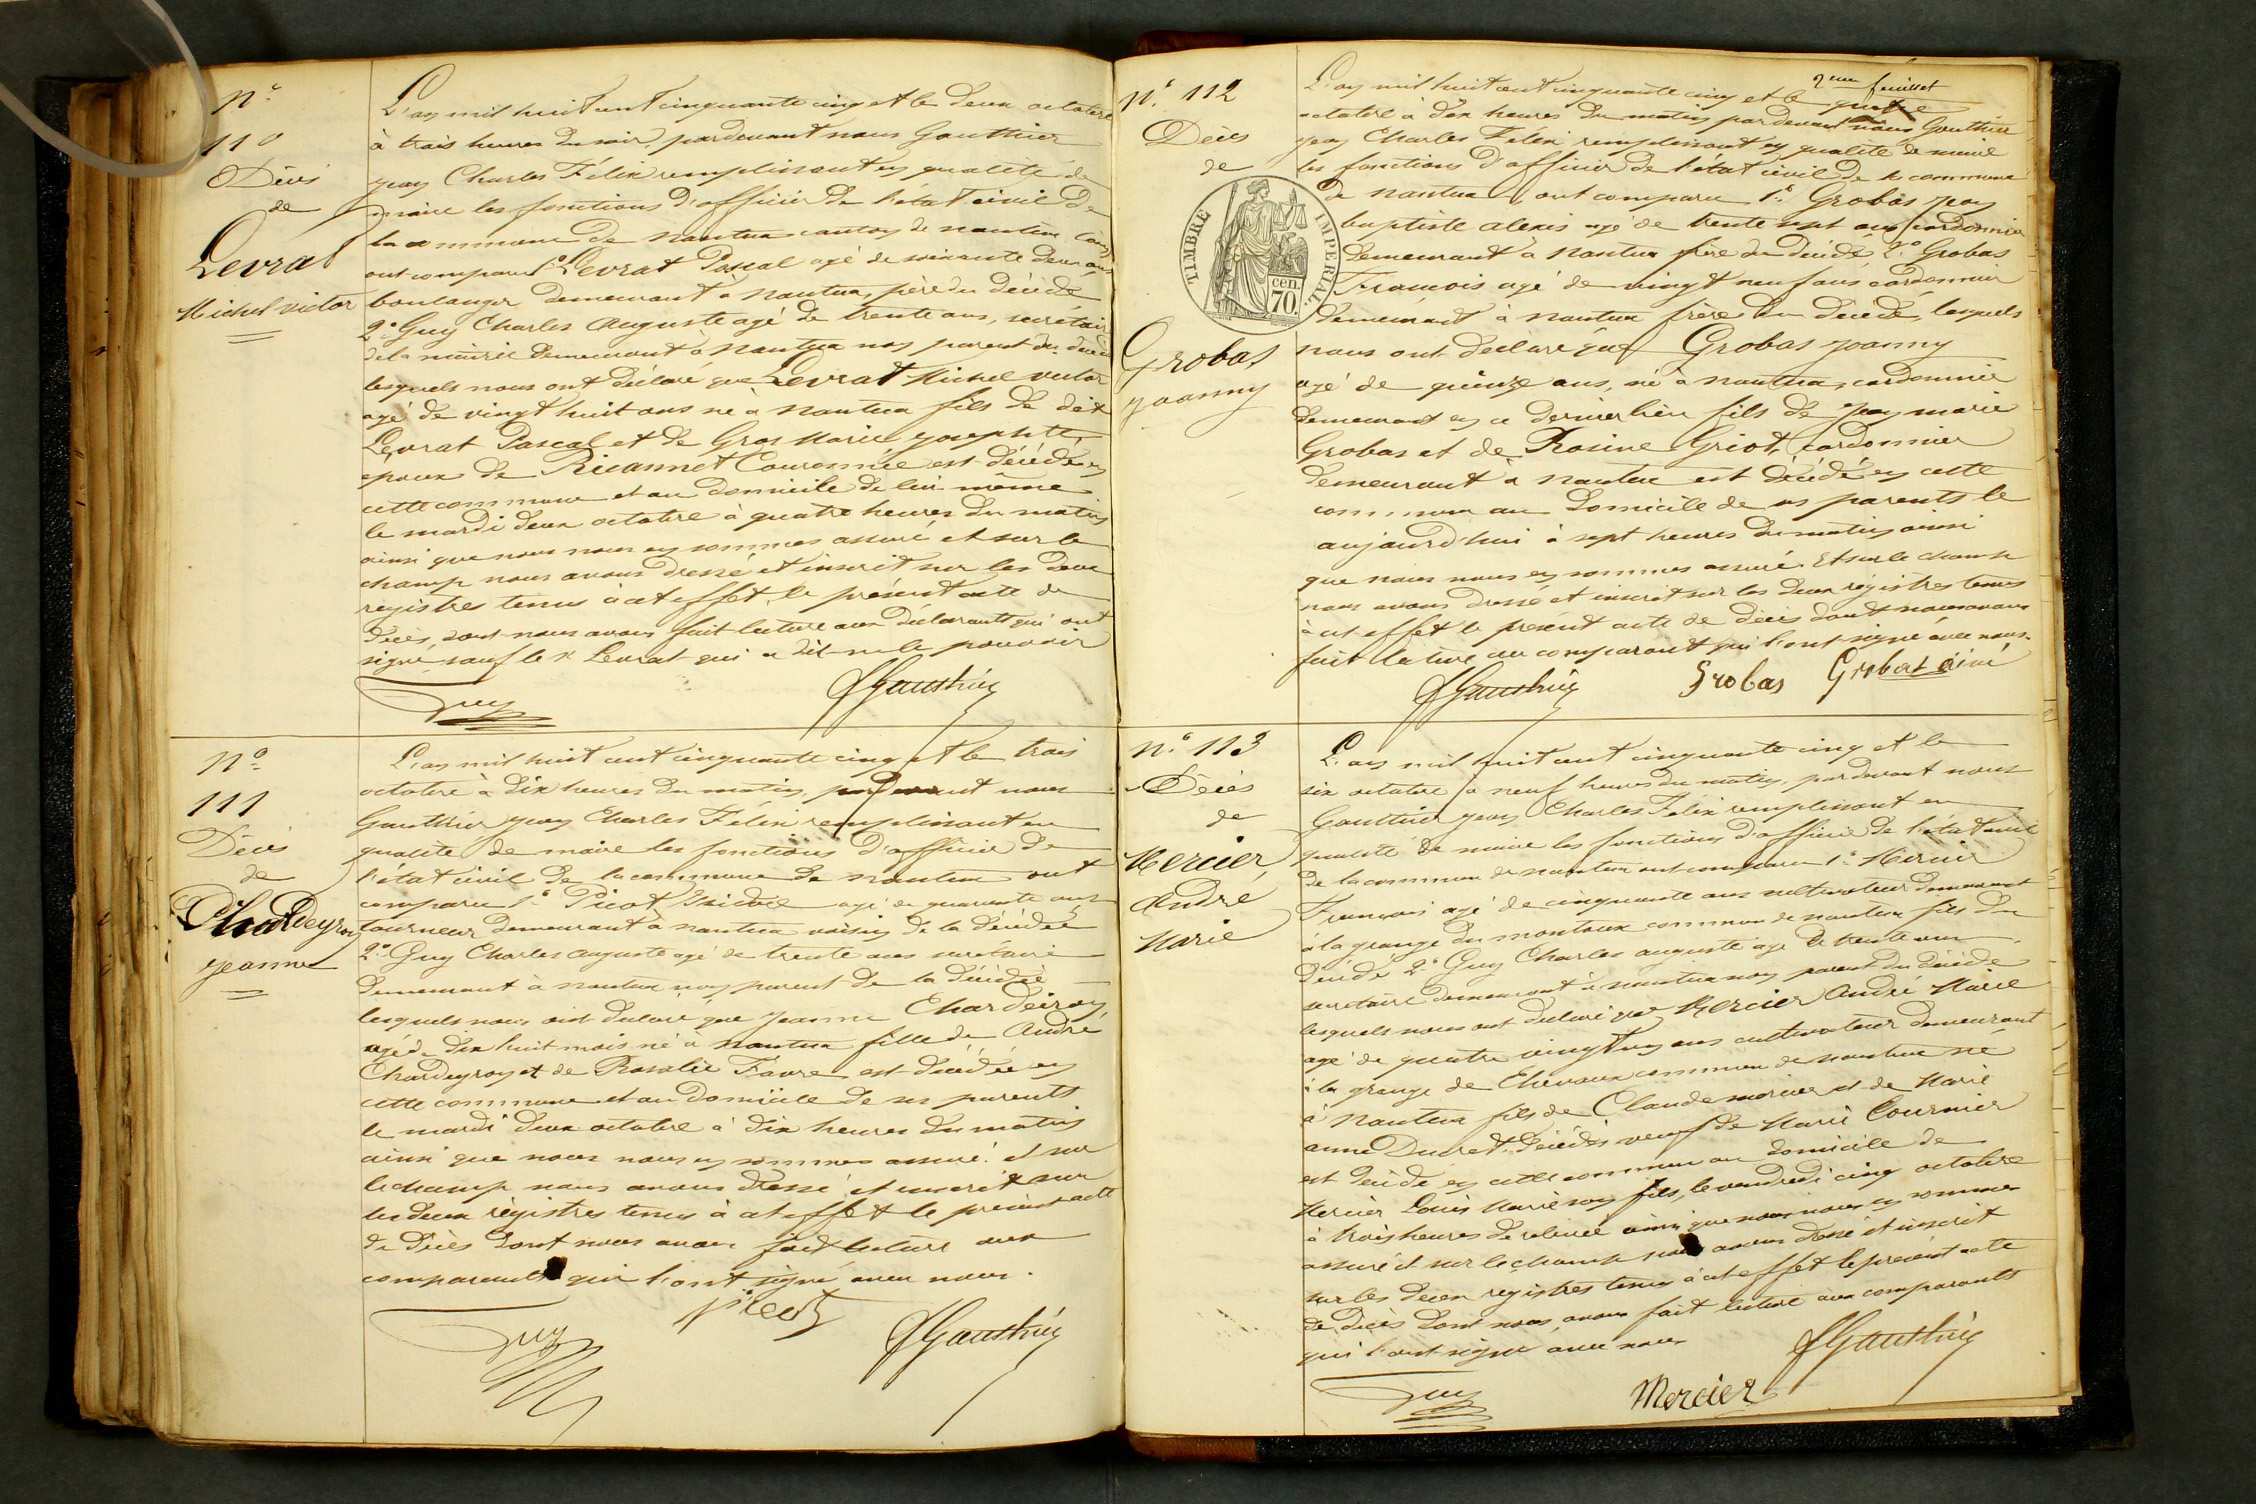 N°
110
Décès
de
Levrat
Michel victor
L'an mil huit cent cinquante cinq et le deux octobre
à trois heures du soir, pardevant nous Gauthier
jean Charles Félix remplissant en qualité de
maire les fonctions d'officier de l'état civil de
la commune de nantua canton de nantua
ont comparu 1° Levrat Pascal agé de soixante deux ans
boulanger demeurant à nantua, père du décédé
2° Guy Charles auguste agé de trente ans, secrétaire
de la mairie demeurant à nantua non parent du décédé
lesquels nous ont déclaré que Levrat Michel victor
agé de vingt huit ans né à nantua fils de dit
Levrat Pascal et de Gros Marie josephte
epoux de Couronnée est décédé en
cette commune et au domicile de lui même
le mardi deux octobre à quatre heures du matin
ainsi que nous nous en sommes assuré et sur le
champ nous avons dressé et inscrit sur les deux
registres tenus à cet effet le présent acte de
décès, dont nous avons fait lecture aux déclarants qui ont
signé sauf le sr Levrat qui a dit ne le pouvoir
Guy
Gauthier
N°
111
Décès
de
Chardeyron
jeanne
L'an mil huit cent cinquante cinq et le trois
octobre à dix heures du matin, pardevant nous
Gauthier jean Charles Félix remplissant en
qualité de maire les fonctions d'officier de
l'état civil de la commune de nantua ont
comparu 1° Picot Isidore agé de quarante ans
tourneur demeurant à nantua voisin de la décédée
2° Guy Charles auguste agé de trente ans secrétaire
demeurant à nantua non parent de la décédée
lesquels nous ont déclaré que jeanne Chardeiron
agé de dix huit mois né à nantua fille de André
Chardeyron et de Rosalie Favre est décédée en
cette commune et au domicile de ses parents
le mardi deux octobre à dix heures du matin
ainsi que nous nous en sommes assuré. et sur
le champ nous avons dressé et inscrit sur
les deux régistres tenus à cet effet le présent acte
de décès dont nous avons fait lecture aux
comparants qui l'ont signé avec nous.
Guy
Picot
Gauthier
N° 112
Décès
de
TIMBRE IMPERIAL.
cen.
70.
Grobas
joanny
feuillet
L'an mil huit cent cinquante cinq et le quatre
octobre à dix heures du matin pardevant nous Gauthier
jean Charles Félix remplissant en qualité de maire
les fonctions d'officier de l'état civil de la commune
de nantua, ont comparu 1° Grobas jean
baptiste alexis agé de trente sept ans cordonnier
demeurant à nantua frère du décédé 2° Grobas
François agé de vingt neuf ans cordonnier
demeurant à nantua frère du décédé, lesquels
nous ont déclaré que Grobas joanny
agé de quinze ans, né à nantua, cordonnier
demeurant en ce dernier lieu fils de jean marie
Grobas et de Rosine Griot, cordonnier
demeurant à nantua est décédé en cette
commune au domicile de ses parents le
aujourd'hui à sept heures du matin ainsi
que nous nous en sommes assuré. Et sur le champ
nous avons dressé et inscrit sur les deux régistres tenus
à cet effet le présent acte de décès dont nous avons
fait lecture au comparant qui l'ont signé avec nous.
Gauthier
Grobas
Grobas ainé
N° 113
Décès
de
Mercier,
André
Marie
L'an mil huit cent cinquante cinq et le
six octobre à neuf heures du matin, pardevant nous
Gauthier jean Charles Félix remplissant en
qualité de maire les fonctions d'officier de l'état civil
de la commune de nantua ont comparu 1° Mercier
François agé de cinquante ans cultivateur demeurant
à la grange du montoux commune de nantua fils du
décédé 2° Guy Charles auguste agé de trente ans
secrétaire demeurant à nantua non parent du décédé
lesquels nous ont déclaré que Mercier André Marie
agé de quatre vingt un ans cultivateur demeurant
à la grange de commune de nantua né
à nantua fils de Claude mercier et de Marie
anne Duret, décédés veuf de Marie Cournier
est décédé en cette commune au domicile de
Mercier Louis Marie son fils, le vendredi cinq octobre
à trois heures de relevée ainsi que nous nous en sommes
assuré et sur le champ nous avons dressé et inscrit
sur les deux registres tenus à cet effet le présent acte
de décès dont nous avons fait lecture aux comparants
qui l'ont signé avec nous
Guy
Mercier
Gauthier